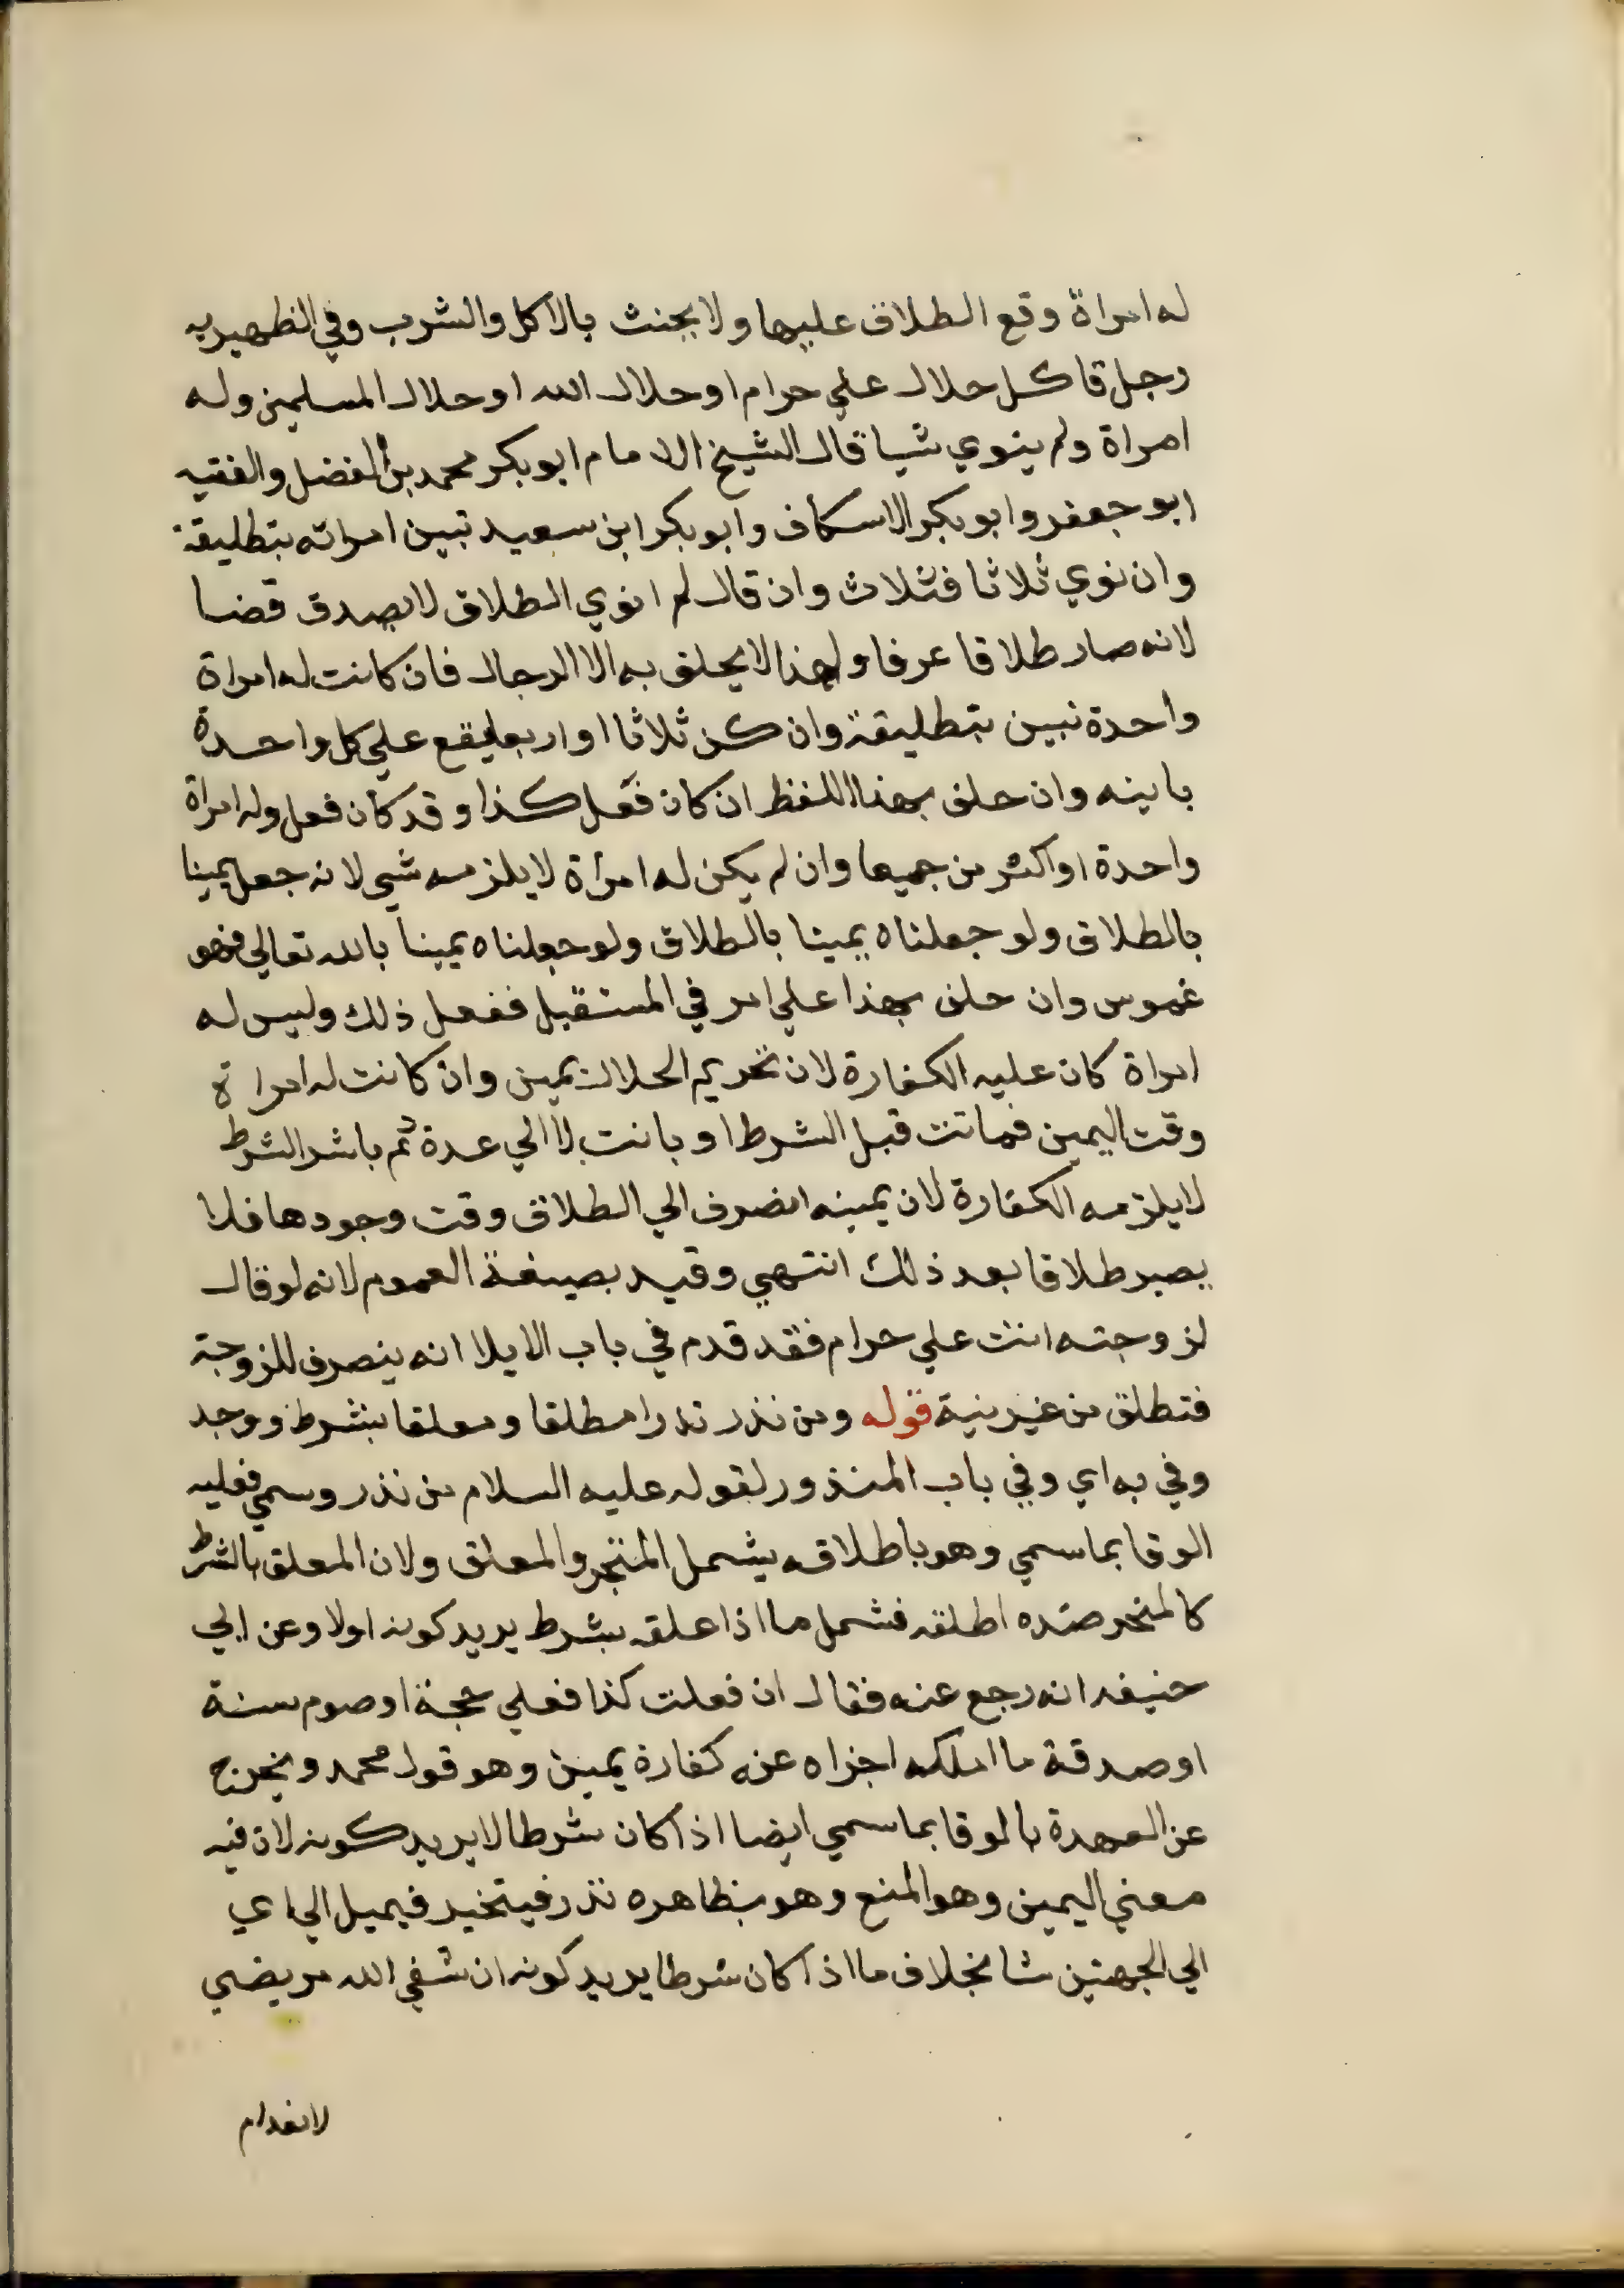 له امراة وقع الطلاق عليها ولا يحنث بالاكل والشرب وفي الظهيريه
رجل قا كل حلال علي حرام او حلال الله او حلال المسلمين وله
امراة ولم ينوي شيا قال الشيخ الامام ابو بكر محمد بن الفضل والفقيه
ابو جعفر وابو بكر الاسكاف وابو بكر ابن سعيد تبين امراته بتطليقة
وان نوي ثلاثا فثلاث وان قال لم انوي الطلاق لا يصدق قضا
لانه صار طلاقا عرفا ولهذا لا يحلف به الا الرجال فان كانت له امراة
واحدة تبين بتطليقة وان كن ثلاثا او اربعا يقع علي كل واحدة
باينه وان حلف بهذا اللفظ ان كان فعل كذا وقد كان فعل وله امراة
واحدة او اكثر من جميعا وان لم يكن له امرأة لا يلزمه شي لانه جعل يمينا
بالطلاق ولو جعلناه يمينا بالطلاق ولو جعلناه يمينا بالله تعالي فهو
غموس وان حلف بهذا علي امر في المستقبل ففعل ذلك وليس له
امراة كان عليه الكفارة لان تحريم الحلال يمين وان كانت له امراة
وقت اليمين فماتت قبل الشرط او بانت لا الي عدة ثم باشر الشرط
لا يلزمه الكفارة لان يمينه انصرف الي الطلاق وقت وجودها فلا
يصير طلاقا بعد ذلك انتهي وقيد بصيغة العموم لانه لو قال
لزوجته انت علي حرام فقد قدم في باب الايلا انه ينصرف للزوجة
فتطلق من غير نية قوله ومن نذر نذرا مطلقا ومعلقا بشرط ووجد
وفي به اي وفي باب المنذور لقوله عليه السلام من نذر وسمي فعليه
الوفا بما سمي وهو باطلاقه يشمل المنجر والمعلق ولان المعلق بالشرط
كالمنجر عنده اطلقه فشمل ما اذا علقه بشرط يريد كونه اولا وعن ابي
حنيفه انه رجع عنه فقال ان فعلت كذا فعلي حجة او صوم سنة
او صدقة ما املكه اجزاه عنه كفارة يمين وهو قول محمد ويخرج
عن العهدة بالوفا بما سمي ايضا اذا كان شرطا لا يريد كونه لان فيه
معني اليمين وهو المنع وهو بظاهره نذر فيتخير فيميل الي اي
الي الجهتين شا بخلاف ما اذا كان شرطا يريد كونه ان شفي الله مريضي
لانعدام